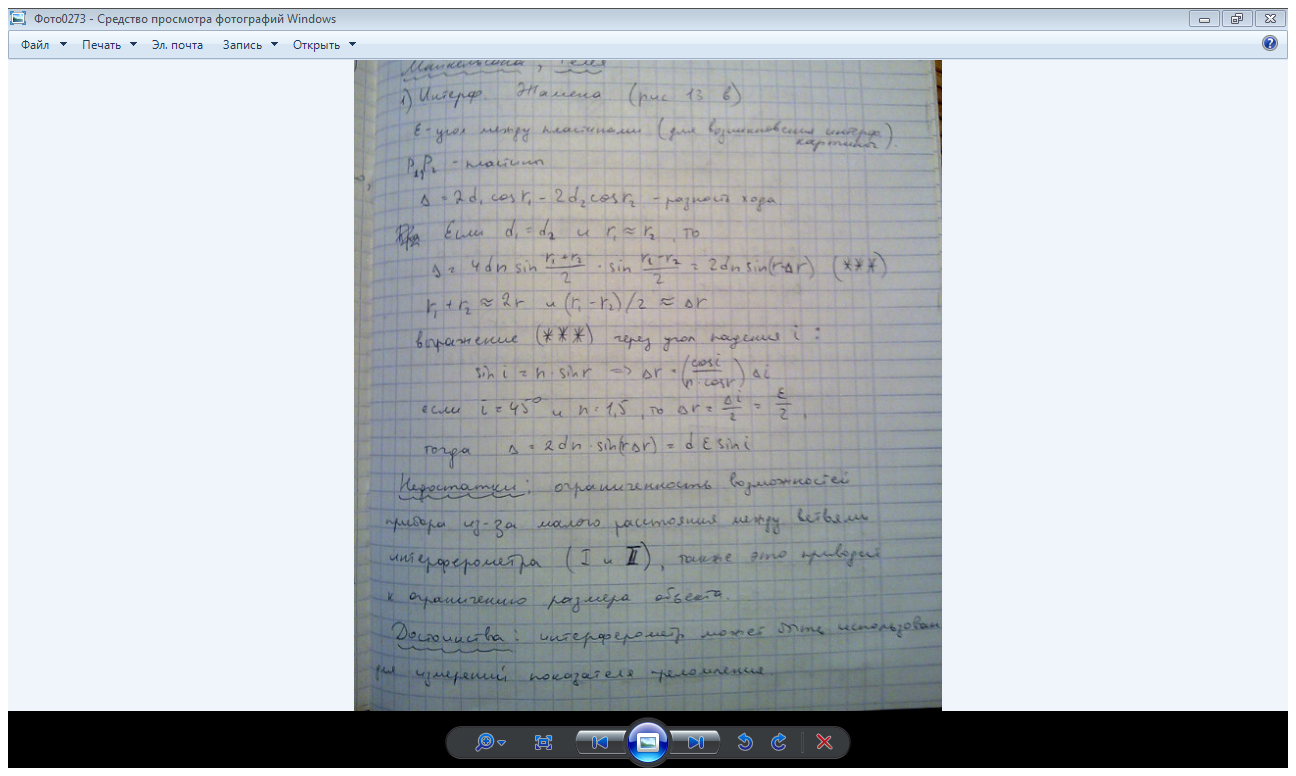 Фото0273 - Средство просмотра фотографий Windows
Файл Печать Эл. почта Запись Открыть
Майкельсона,
1) Интерф. Жамена (рис 13 в)
ε - угол между пластинами (для возникновения интерф. картины).
P₁, P₂ - пластины
Δ = 2d₁cosr₁ - 2d₂cosr₂ - разность хода
Если d₁ = d₂ и r₁ ≈ r₂, то
Δ = 4dn sin (r₁+r₂)/2 · sin (r₁-r₂)/2 = 2dn sin(r·Δr) (***)
r₁ + r₂ ≈ 2r и (r₁ - r₂)/2 ≈ Δr
выражение (***) через угол падения i :
sin i = n · sinr => Δr = (cosi / n·cosr) Δi
если i = 45° и n = 1,5, то Δr = Δi/2 = ε/2,
тогда Δ = 2dn · sin(rΔr) = dεsini
Недостатки: ограниченность возможностей
прибора из-за малого расстояния между ветвями
интерферометра (I и II), также это приводит
к ограничению размера объекта.
Достоинства: интерферометр может быть использован
для измерений показателя преломления.